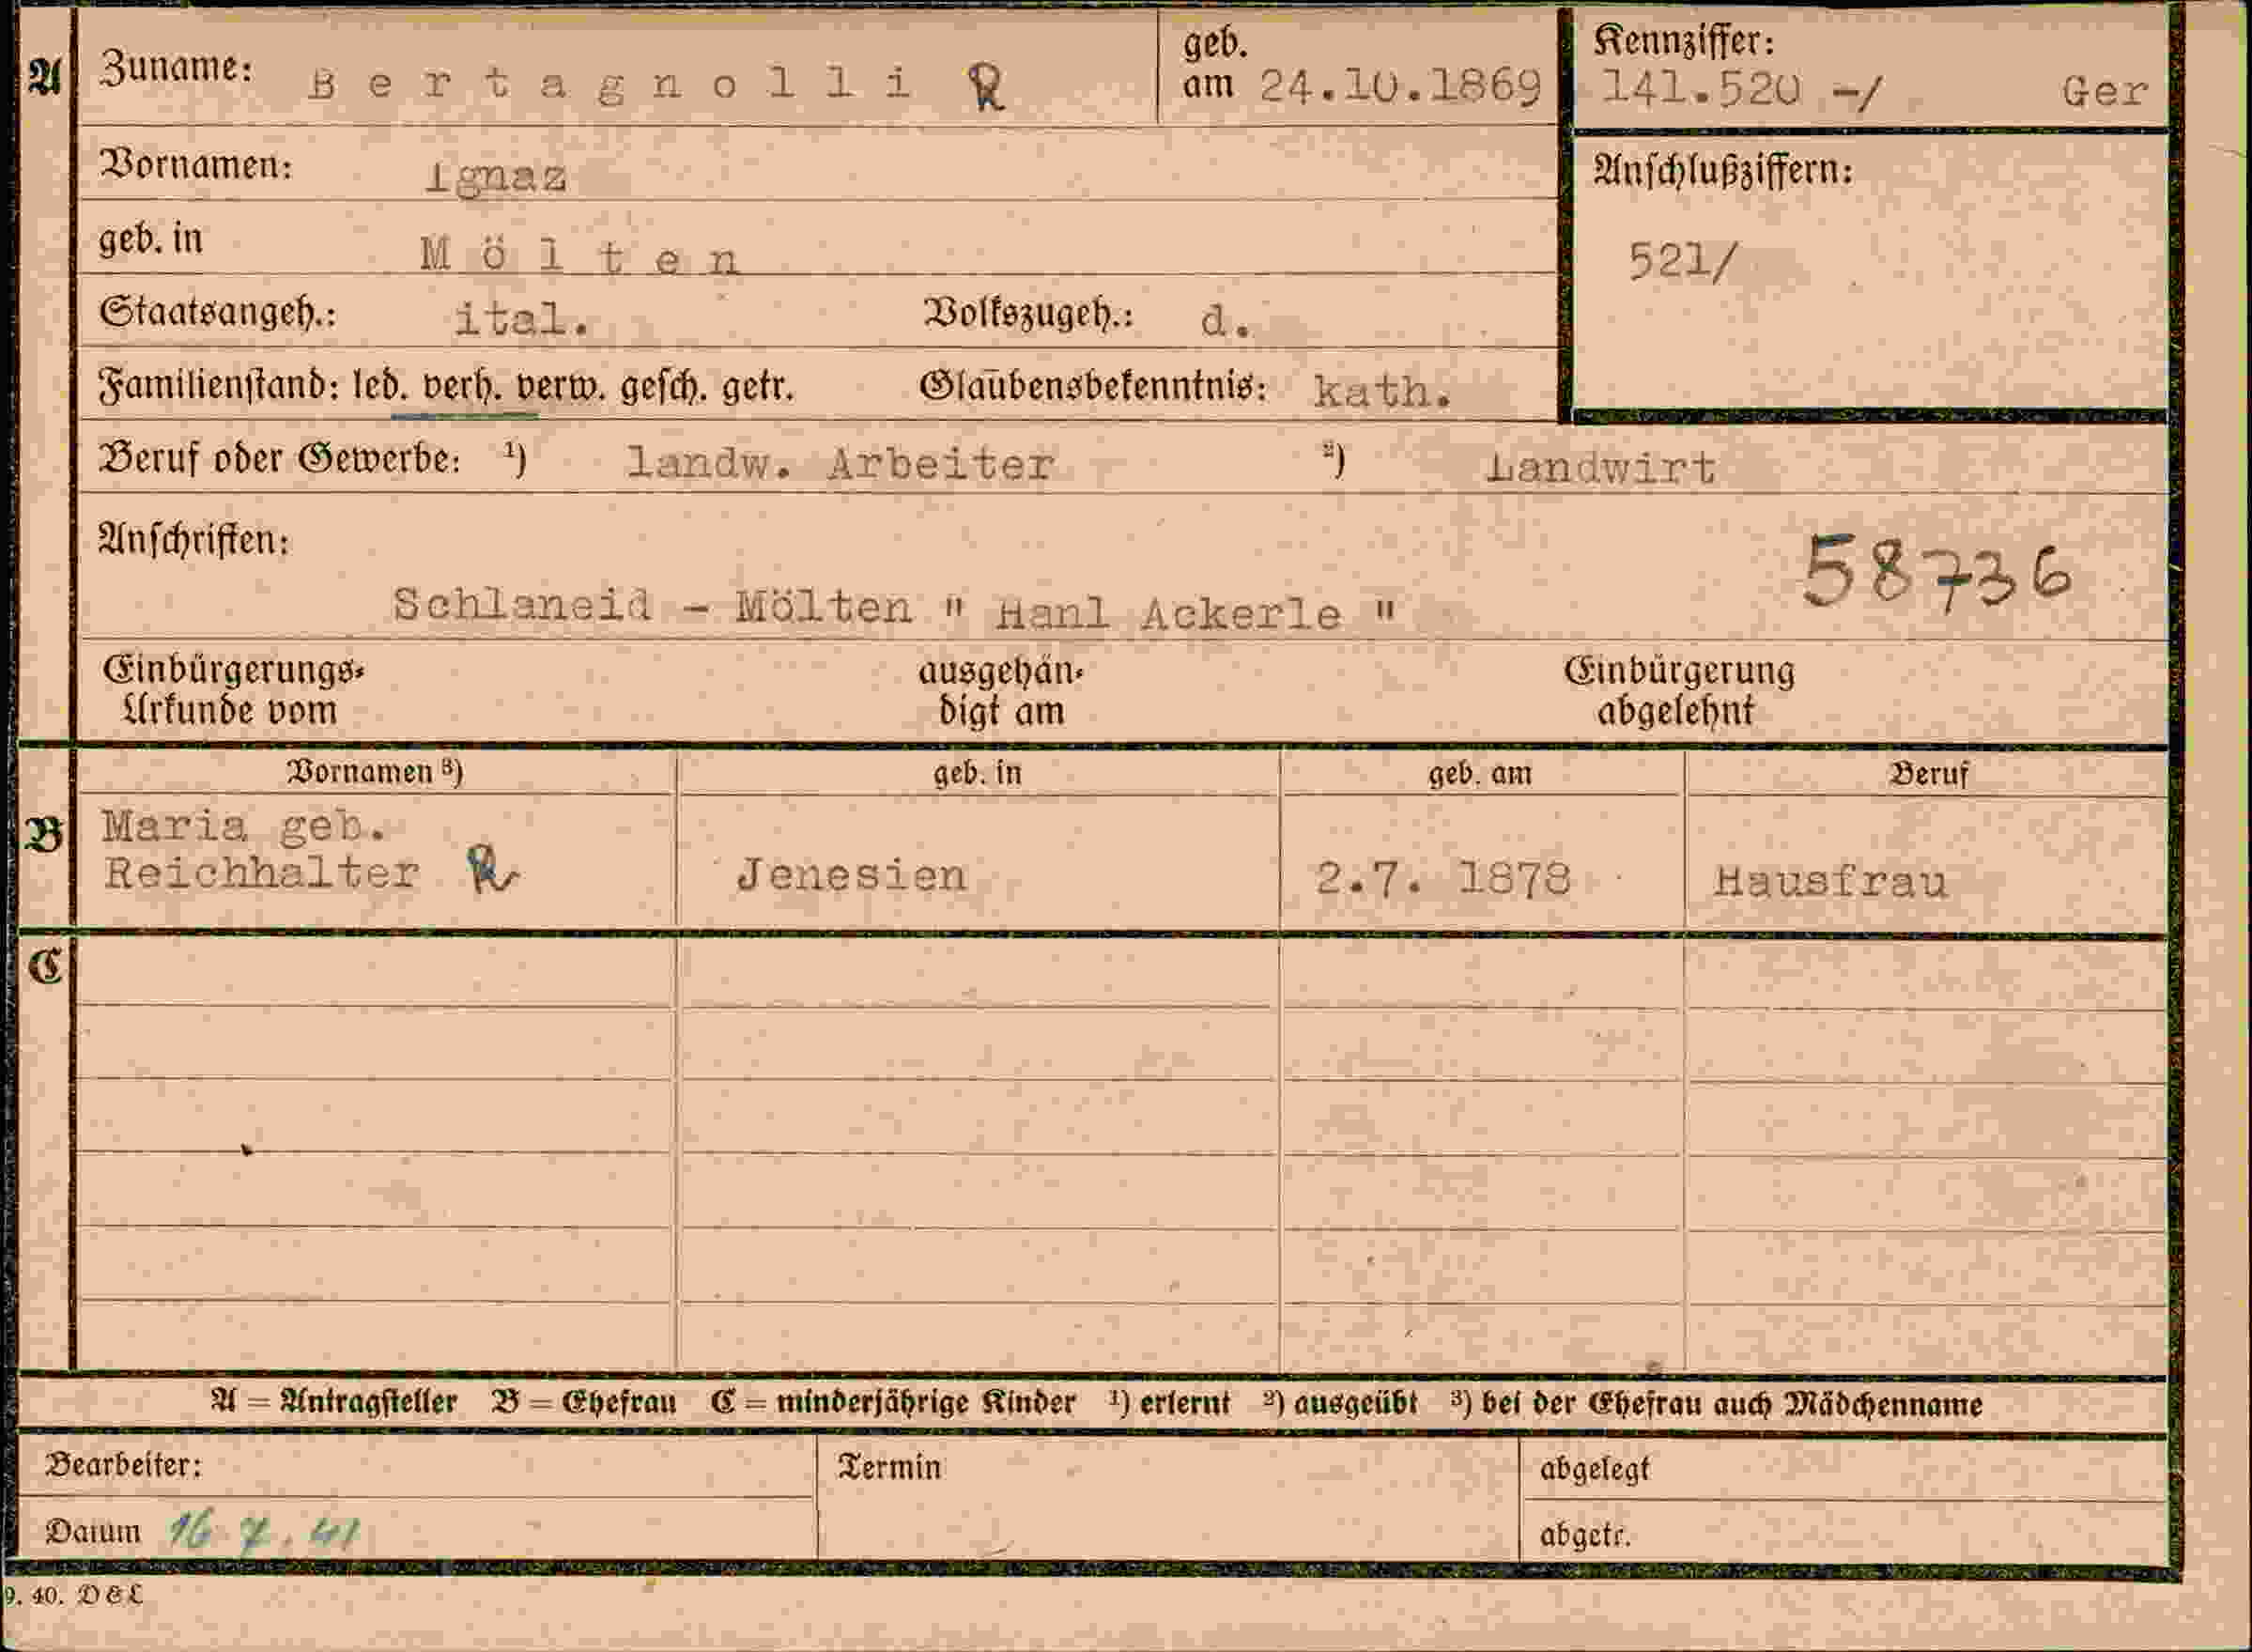 A Zuname: Bertagnolli R geb. am 24.10.1869 Kennziffer: 141.520 -/ Ger
Vornamen: Ignaz Anschlußziffern:
geb. in Mölten 521/
Staatsangeh.: ital. Volkszugeh.: d.
Familienstand: led. verh. verw. gesch. getr. Glaubensbekenntnis: kath.
Beruf oder Gewerbe: ¹) landw. Arbeiter ²) Landwirt
Anschriften: 58736
Schlaneid - Mölten " Hanl Ackerle "
Einbürgerungs- ausgehän- Einbürgerung
Urkunde vom digt am abgelehnt
Vornamen ³) geb. in geb. am Beruf
B Maria geb.
Reichhalter R Jenesien 2.7. 1878 Hausfrau
C
A = Antragsteller B = Ehefrau C = minderjährige Kinder ¹) erlernt ²) ausgeübt ³) bei der Ehefrau auch Mädchenname
Bearbeiter: Termin abgelegt
Datum 16.7.41 abgetr.
9. 40. D & L